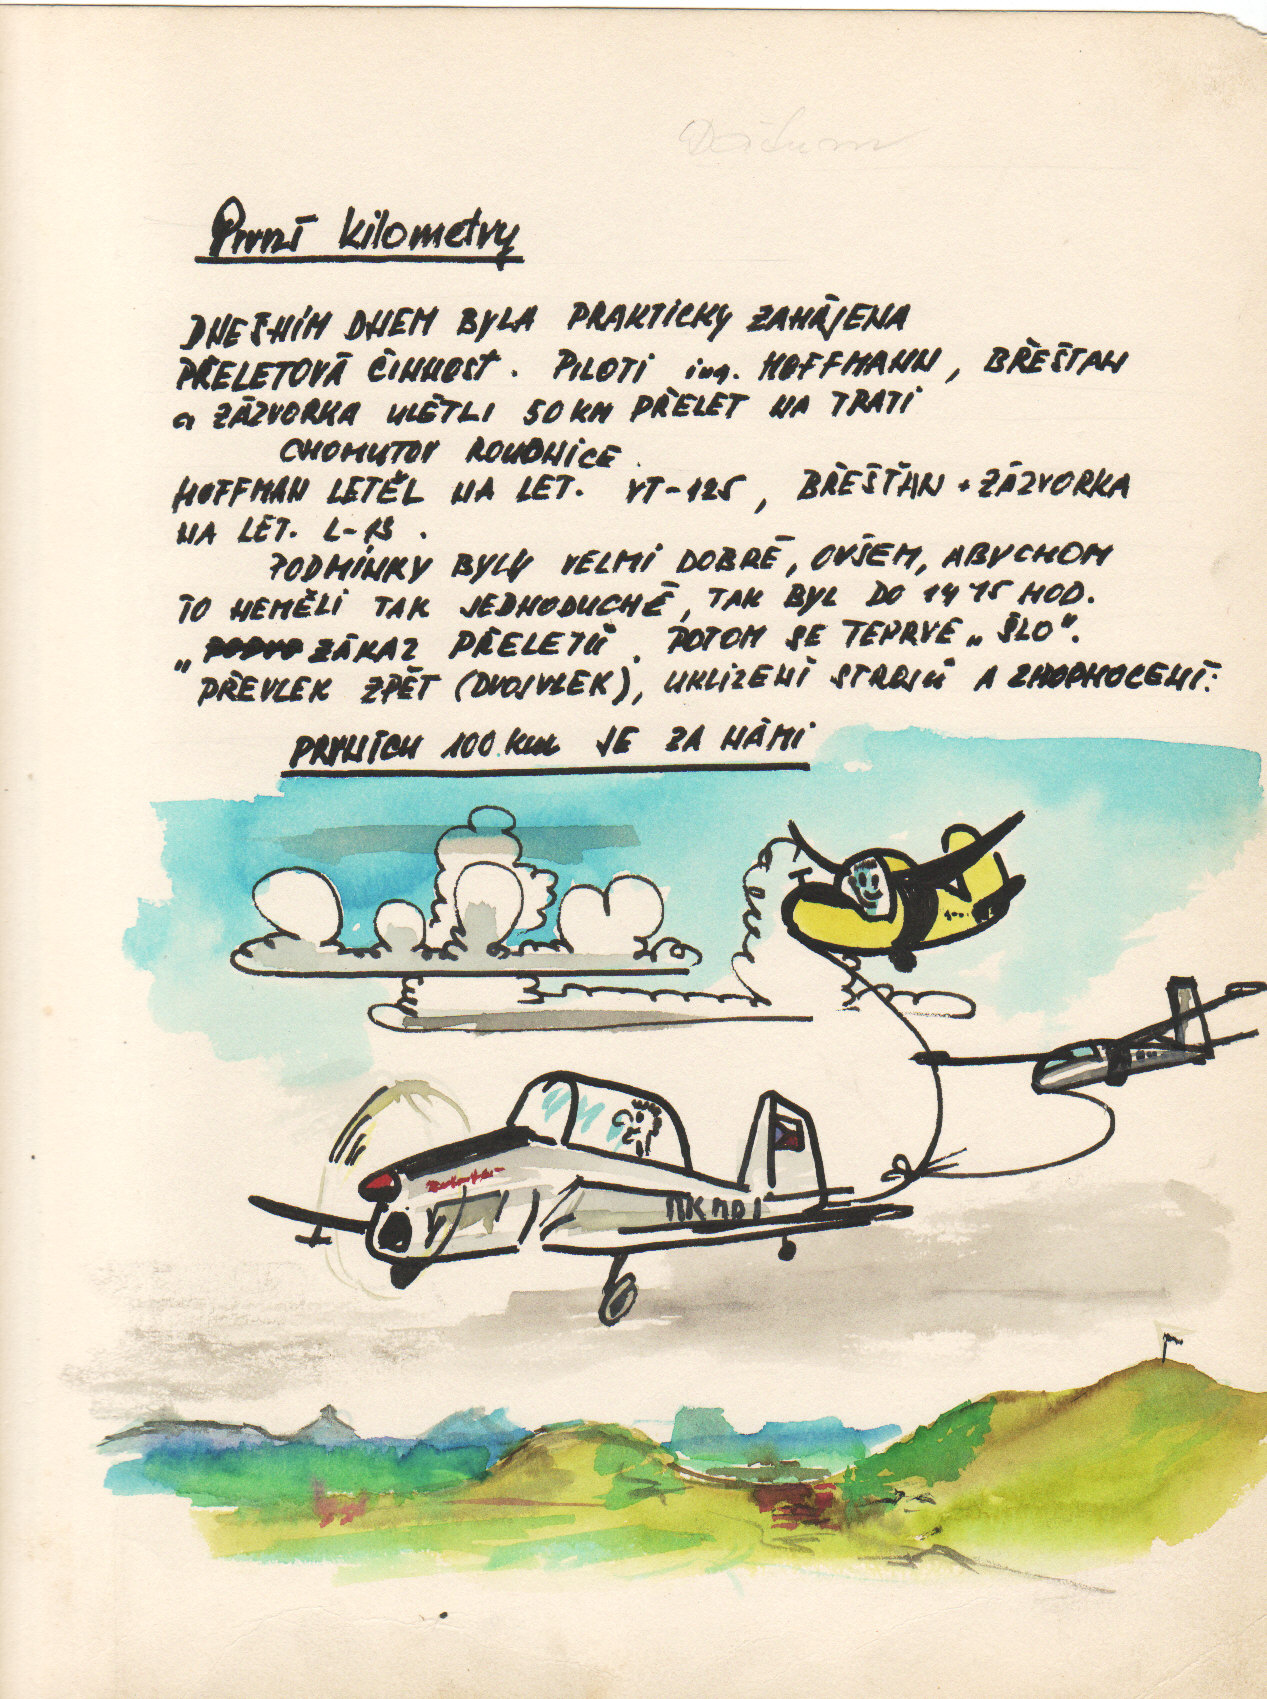 Datum
První kilometry
DNEŠNÍM DNEM BYLA PRAKTICKY ZAHÁJENA
PŘELETOVÁ ČINNOST. PILOTI ing. HOFFMANN, BŘEŠŤAN
a ZÁZVORKA ULÉTLI 50 KM PŘELET NA TRATI
CHOMUTOV ROUDNICE.
HOFFMAN LETĚL NA LET. VT-125, BŘEŠŤAN + ZÁZVORKA
NA LET. L-13.
PODMÍNKY BYLY VELMI DOBRÉ, OVŠEM, ABYCHOM
TO NEMĚLI TAK JEDNODUCHÉ, TAK BYL DO 14 15 HOD.
„ ZÁKAZ PŘELETŮ. POTOM SE TEPRVE „ŠLO".
PŘEVLEK ZPĚT (DVOJVLEK), UKLIZENÍ STROJŮ A ZHODNOCENÍ:
PRVNÍCH 100 km JE ZA NÁMI